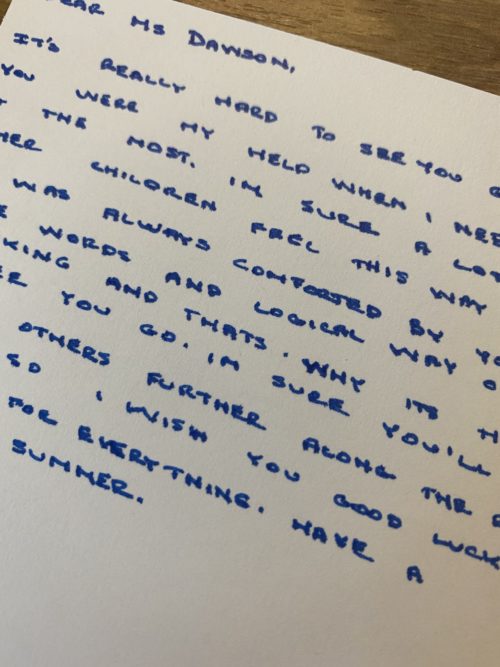 EAR MS DAWSON,
IT'S REALLY HARD TO SEE YOU G
YOU WERE MY HELP WHEN I NEE
T THE MOST. IM SURE A LOT
HER CHILDREN FEEL THIS WAY
WAS ALWAYS COMFORTED BY YO
E WORDS AND LOGICAL WAY O
KING AND THATS. WHY ITS H
EE YOU GO. IM SURE YOU'LL
OTHERS FURTHER ALONG THE
SO I WISH YOU GOOD LUCK
FOR EVERYTHING. HAVE A
SUMMER.